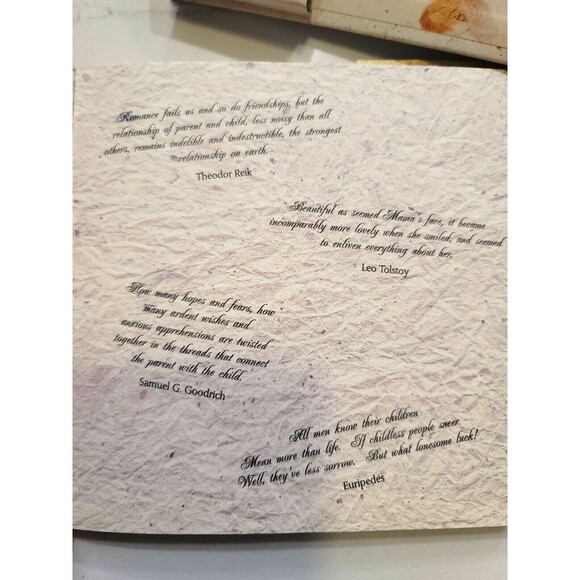 Romance fails us and so do friendships, but the
relationship of parent and child, less noisy than all
others, remains indelible and indestructible, the strongest
relationship on earth.
Theodor Reik
Beautiful as seemed Mama's face, it became
incomparably more lovely when she smiled, and seemed
to enliven everything about her.
Leo Tolstoy
How many hopes and fears, how
many ardent wishes and
anxious apprehensions are twisted
together in the threads that connect
the parent with the child.
Samuel G. Goodrich
All men know their children
Mean more than life. If childless people sneer
Well, they've less sorrow. But what lonesome luck!
Euripedes